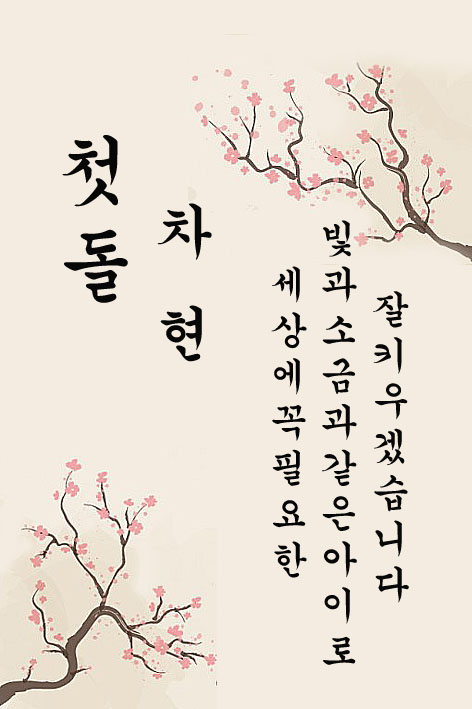 첫돌
차현
세상에꼭필요한
빛과소금과같은아이로
잘키우겠습니다